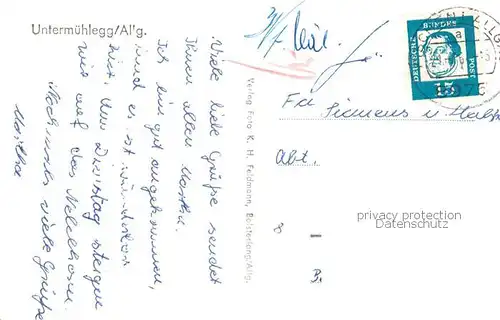 Untermühlegg/Allg.
Viele liebe Grüße sendet
Ihnen allen Martha.
Ich bin gut angekommen,
und es ist wunderbar
hier. Am Dienstag steigen
wir auf das Nebelhorn.
Nochmals viele Grüße
Martha
Verlag Foto K. H. Feldmann, Bolsterlang/Allg.
DEUTSCHE BUNDESPOST
15
Fa
Siemens u. Halske
Abt.
B.
privacy protection
Datenschutz